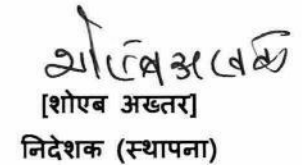 शोएब अख्तर
[शोएब अख्तर]
निदेशक (स्थापना)